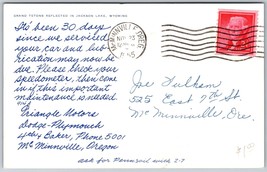 GRAND TETONS REFLECTED IN JACKSON LAKE, WYOMING
It's been 30 days
since we serviced
your car and lub-
rication may now be
due. Please check your
speedometer, then come
in if this important
maintenance is needed.
Triangle Motors
Dodge-Plymouth
4th & Baker, Phone 5001
McMinnville, Oregon
McMINNVILLE OREG.
NOV
Joe Fulham
525 East 7th St.
Mc Minnville, Ore.
ask for Pennzoil with Z-7